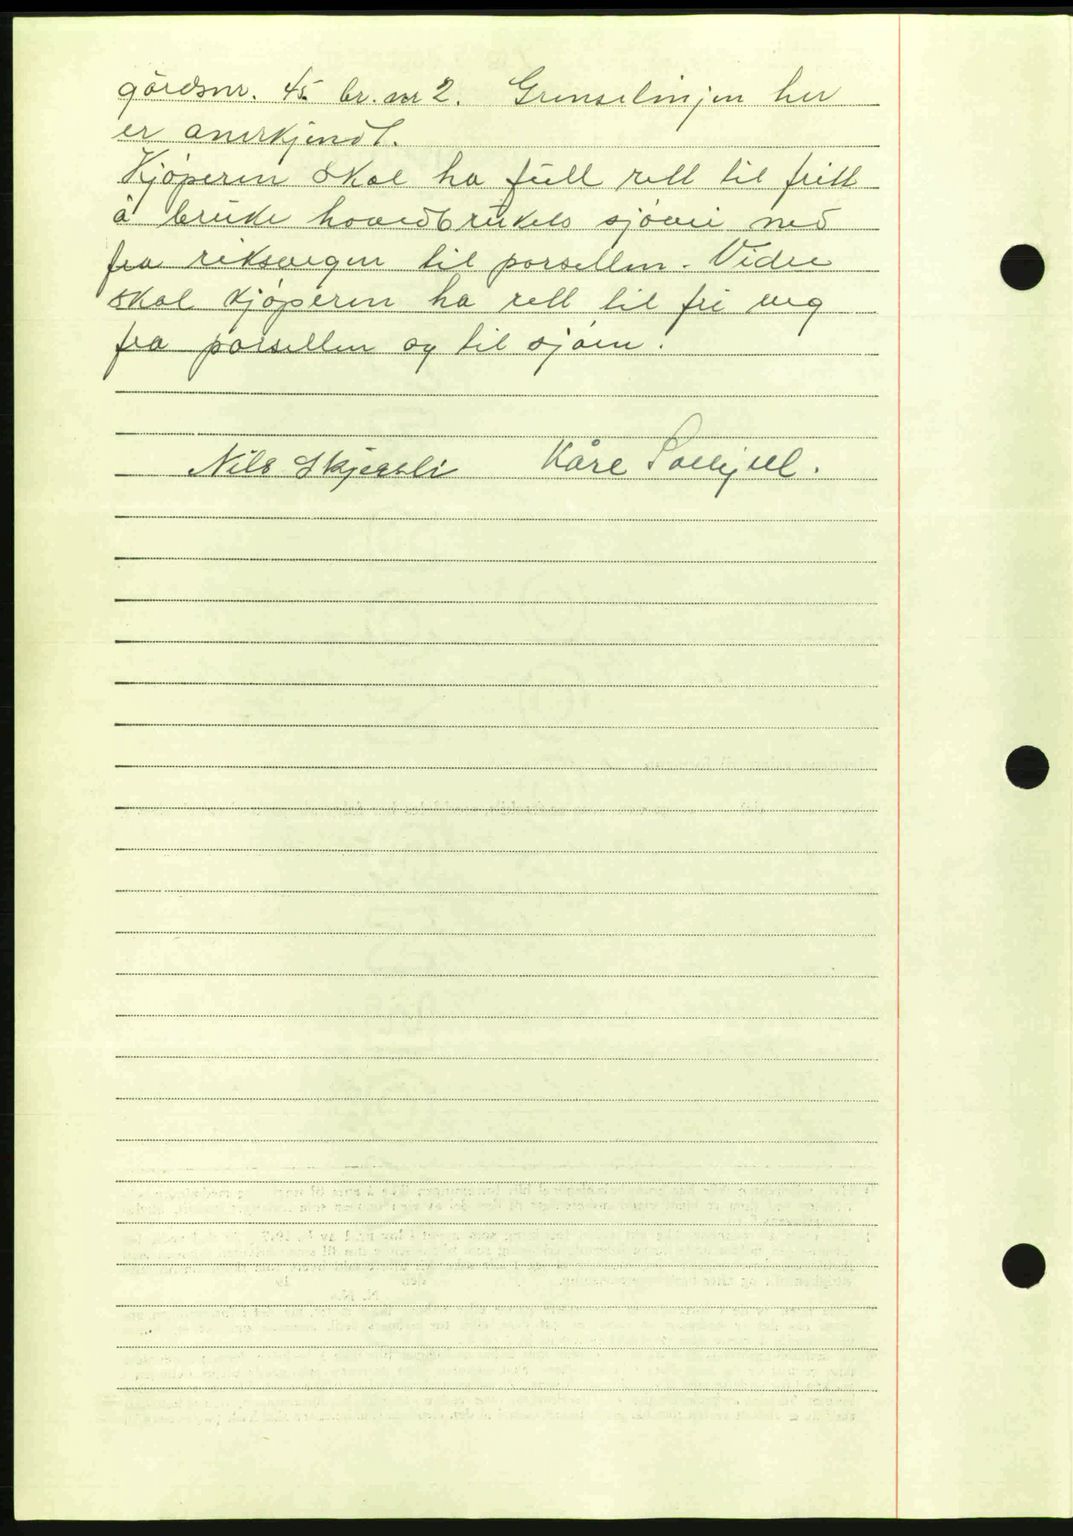 gårdsnr. 45 br. nr 2. Grenselinjen her
er anerkjendt.
Kjøperen skal ha full rett til fritt
å bruke hovedbrukets sjøvei ned
fra riksvegen til parsellen. Videre
skal kjøperen ha rett til fri veg
fra parsellen og til sjøen.
Nils Skjegsli Kåre